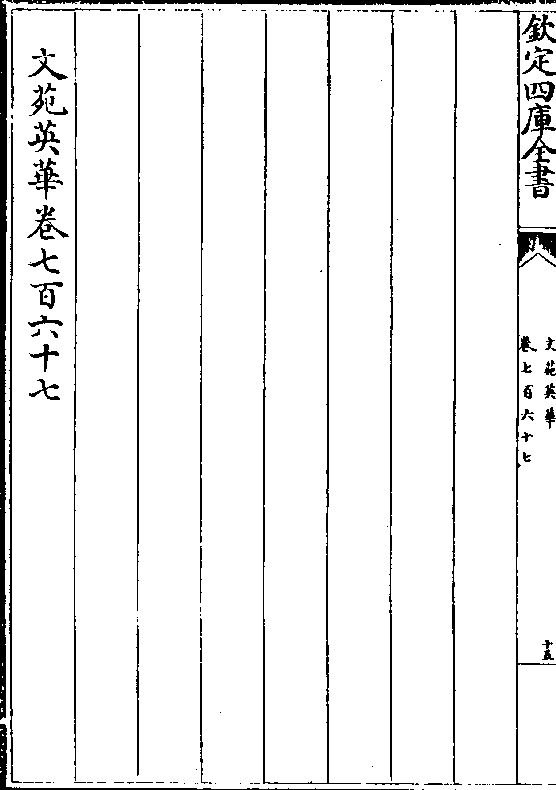 欽定四庫全書
文苑英華
卷七百六十七
十五
文苑英華卷七百六十七